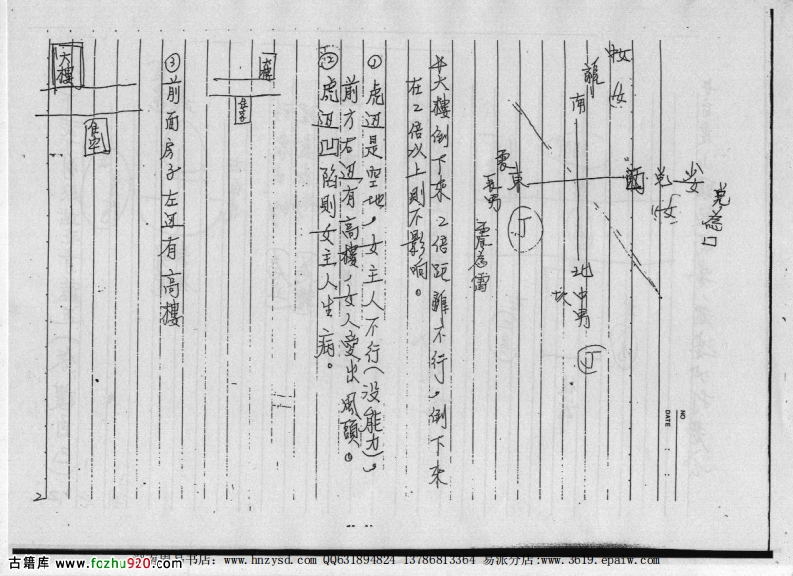 NO
DATE
兌為口
少女
兌
中女
南
西
東
長男
震為雷
北
中男
坎
大樓倒下來2倍距離不行，倒下來
在2倍以上則不影响。
① 虎边是空地，女主人不行(没能力)，
前方右边有高樓，女人愛出風頭。
② 虎边凹陷則女主人生病。
③ 前面房子左边有高樓
大樓
2
古籍库: www.fozhu920.com
书店: www.hnzysd.com QQ631894824 13786813364 易派分店:www.3619.epaiw.com